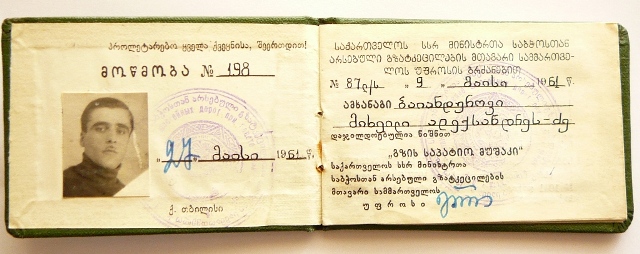 პროლეტარებო ყველა ქვეყნისა, შეერთდით!
მოწმობა № 198
„27“ მაისი 1961 წ.
ქ. თბილისი
საქართველოს სსრ მინისტრთა საბჭოსთან
არსებული გზატკეცილების მთავარი სამმართვე-
ლოს უფროსის ბრძანებით
№ 87 „9“ მაისი 1961 წ.
ამხანაგი ბაიანდუროვი
მიხეილ ალექსანდრეს-ძე
დაჯილდოებულია ნიშნით
„გზის საპატიო მუშაკი“
საქართველოს სსრ მინისტრთა
საბჭოსთან არსებული გზატკეცილების
მთავარი სამმართველოს
უფროსი